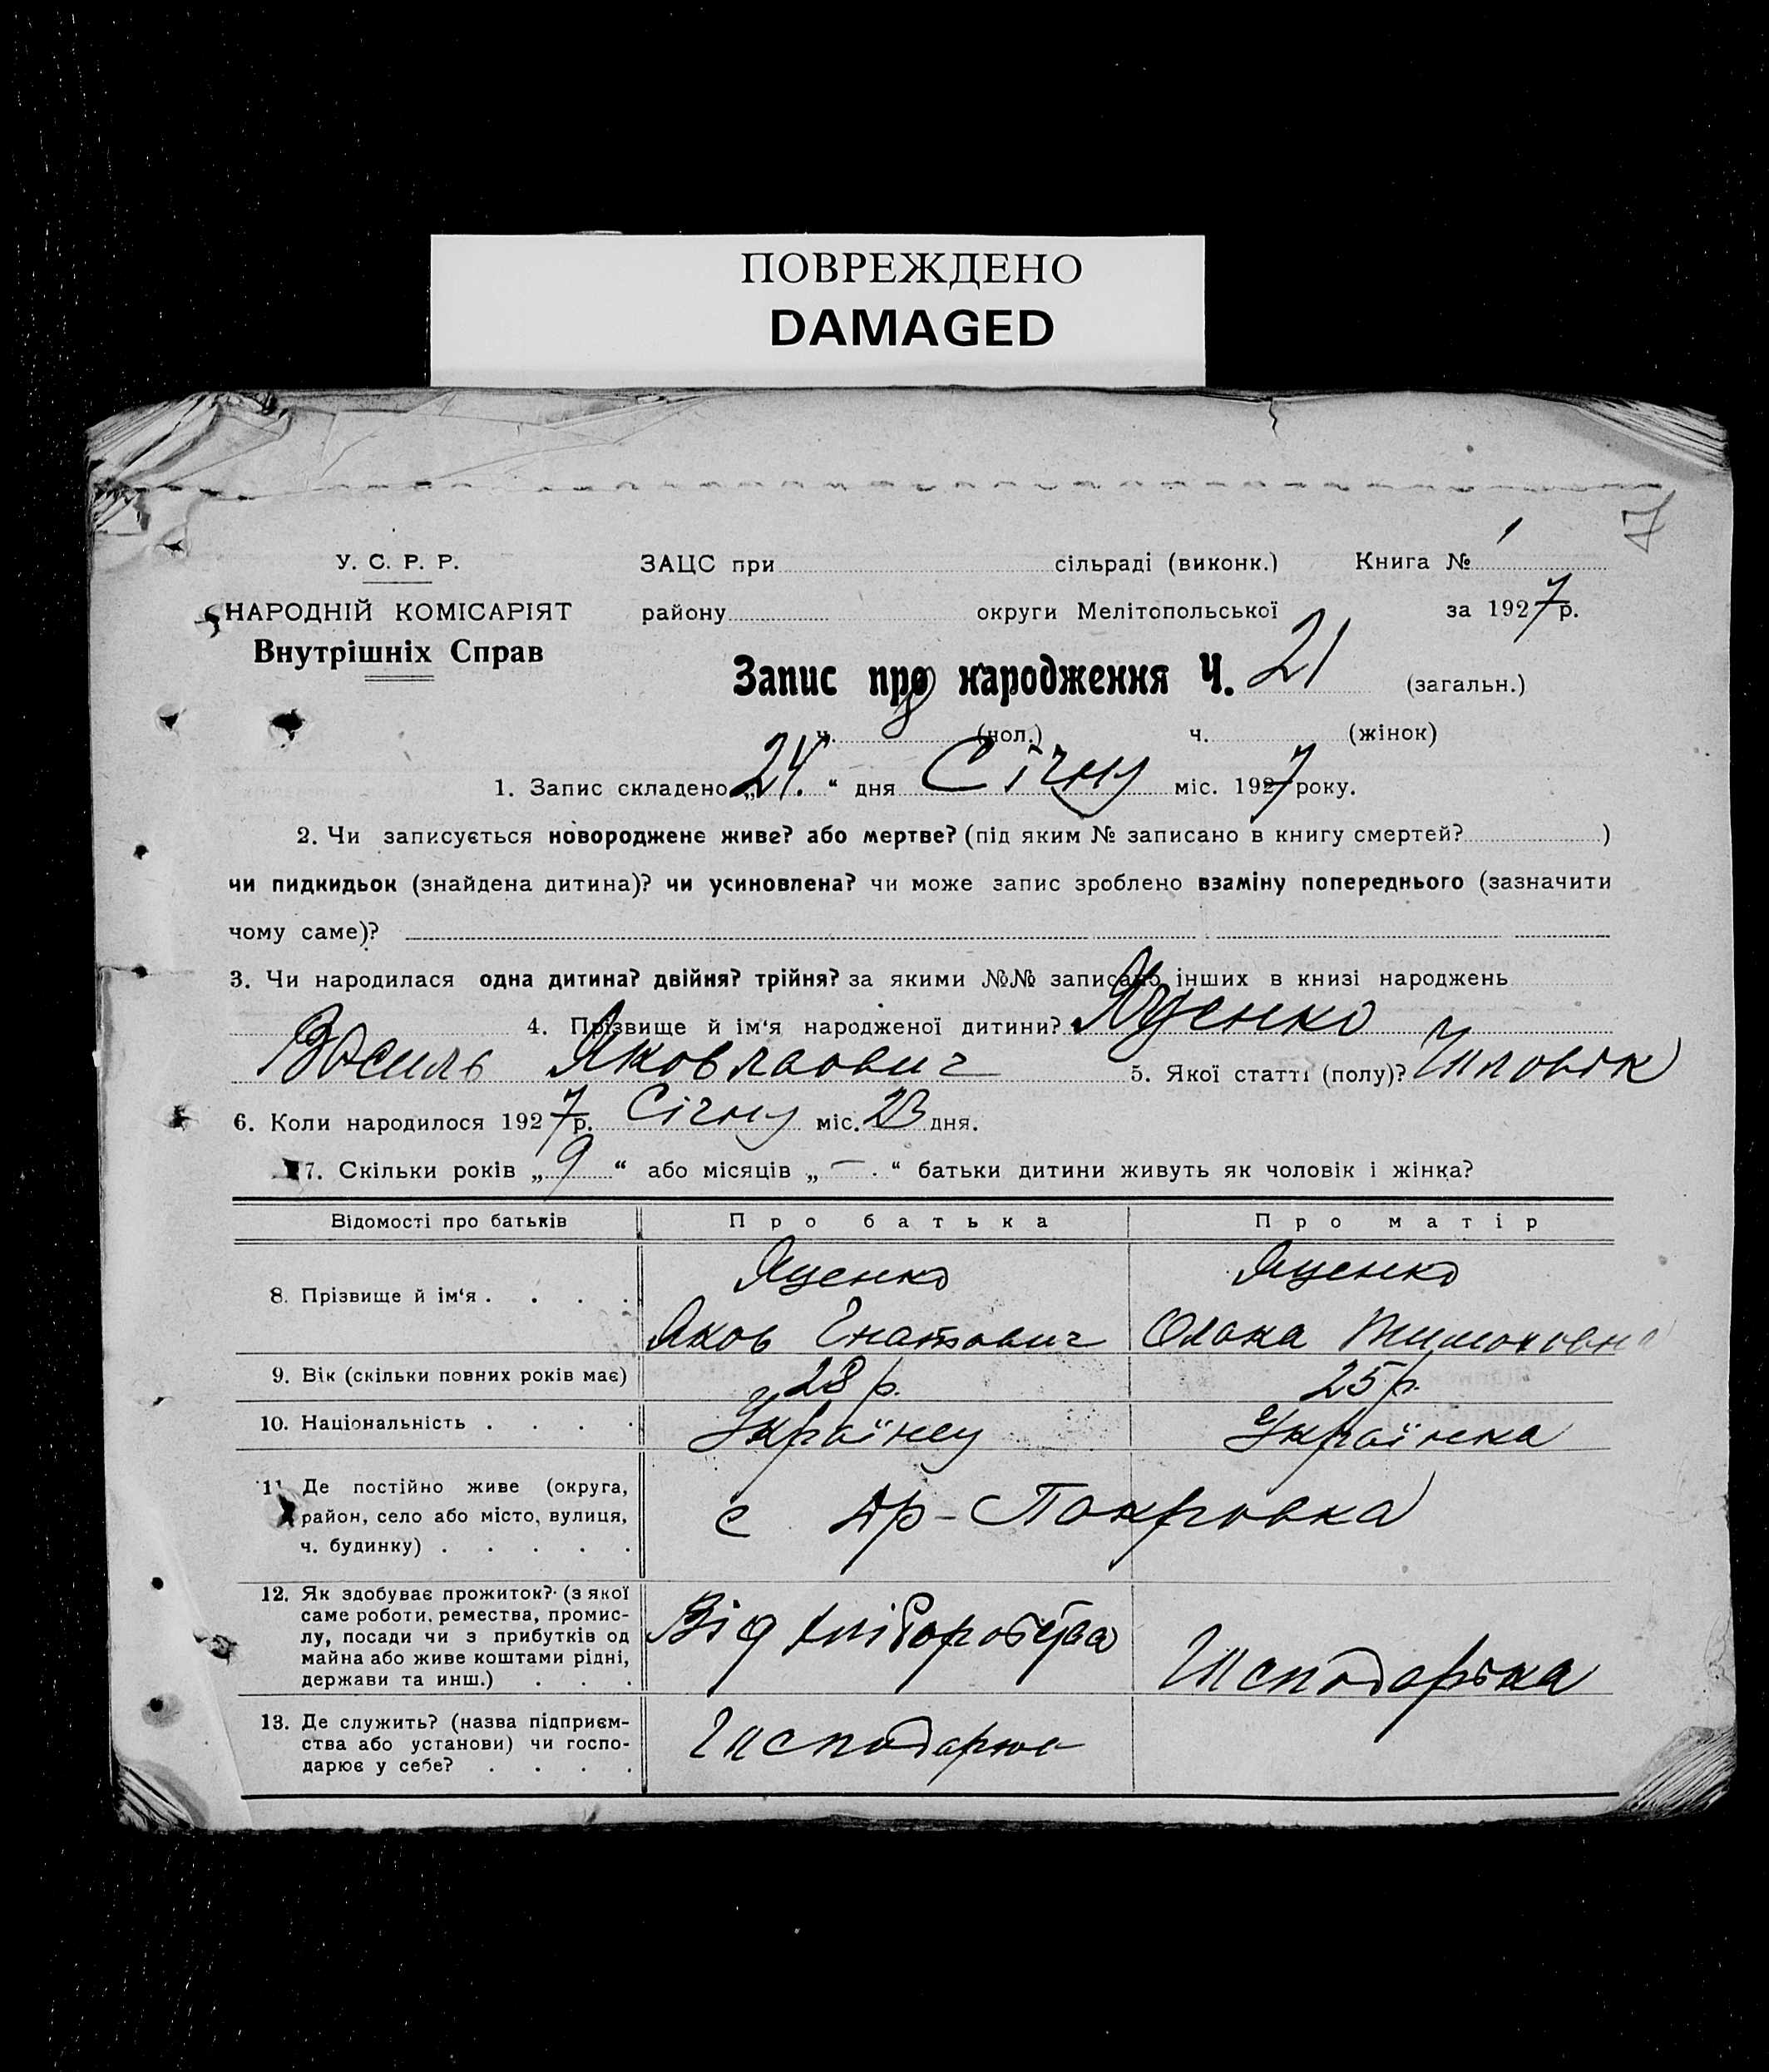 ПОВРЕЖДЕНО
DAMAGED
7
У. С. Р. Р.
НАРОДНІЙ КОМІСАРІЯТ
Внутрішніх Справ
ЗАЦС при сільраді (виконк.) Книга № 1
району округи Мелітопольської за 1927 р.
Запис про народження Ч. 21 (загальн.)
ч. 8 (чол.) ч. (жінок)
1. Запис складено „24.“ дня Січну міс. 1927 року.
2. Чи записується новороджене живе? або мертве? (під яким № записано в книгу смертей? )
чи пидкидьок (знайдена дитина)? чи усиновлена? чи може запис зроблено взаміну попереднього (зазначити
чому саме)?
3. Чи народилася одна дитина? двійня? трійня? за якими №№ записано інших в книзі народжень
4. Прізвище й ім‘я народженої дитини? Яценко
Василь Яковлювич 5. Якої статті (полу)? Чиловік
6. Коли народилося 1927 р. Січну міс. 23 дня.
7. Скільки років „9“ або місяців „—.“ батьки дитини живуть як чоловік і жінка?
Відомості про батьків Про батька Про матір
8. Прізвище й ім‘я . . . . Яценко Яценко
Яков Гнатович Олана Тимоховна
9. Вік (скільки повних років має) 28 р. 25 р.
10. Національність . . . . Українец Українка
11. Де постійно живе (округа,
район, село або місто, вулиця,
ч. будинку) . . . . .
с. Ар-Покровка
12. Як здобуває прожиток? (з якої
саме роботи, ремества, промис-
лу, посади чи з прибутків од
майна або живе коштами рідні,
держави та инш.) . . .
Від хліборобства Господарька
13. Де служить? (назва підприєм-
ства або установи) чи госпо-
дарює у себе? . . . .
Господарює